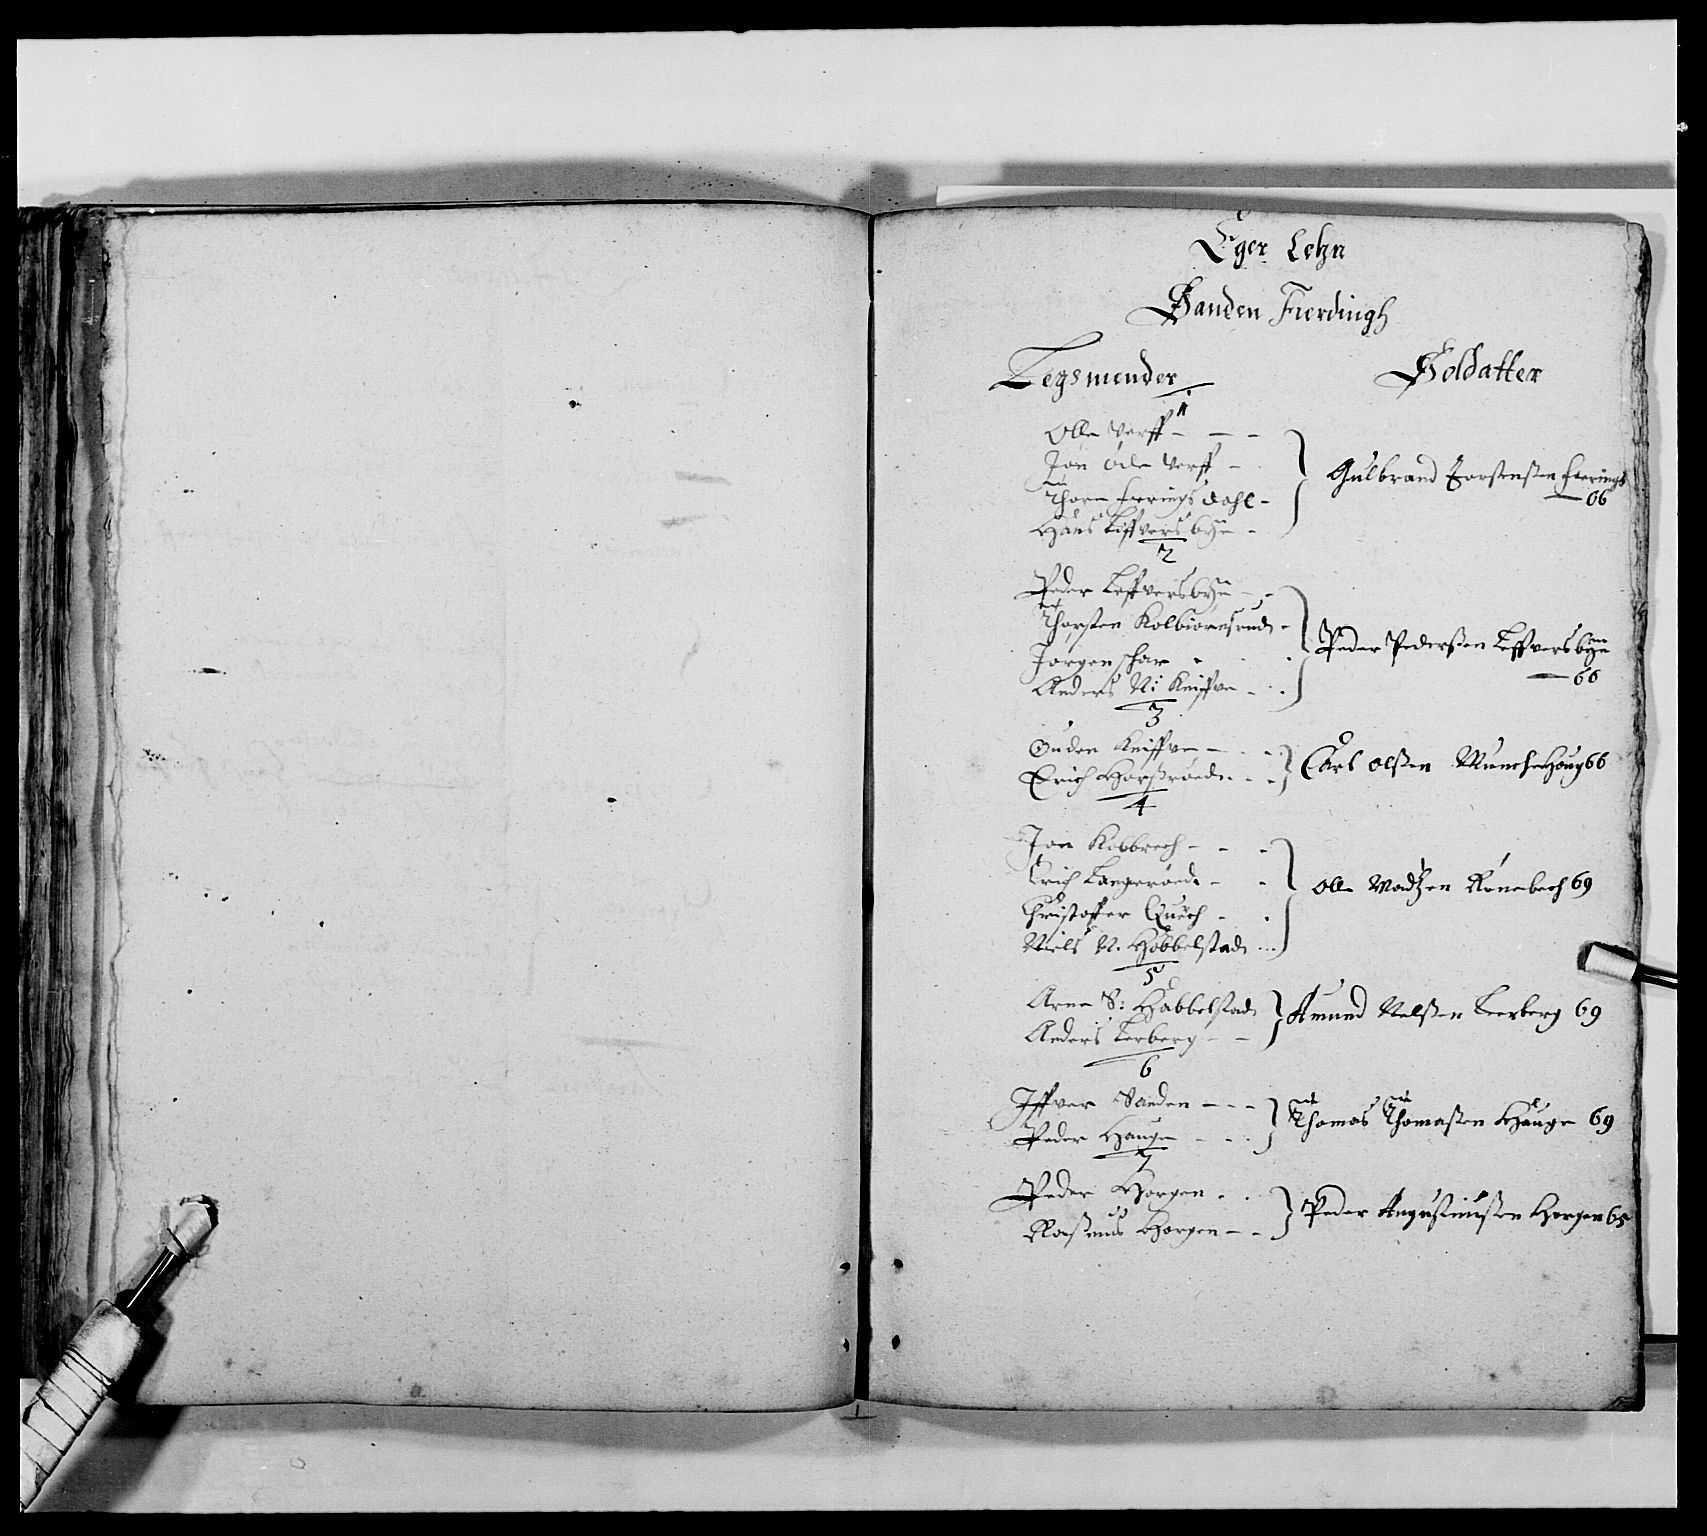 Eger Lehn
Sanden Fierdingh
Legsmender
Soldatter
1
Olle Verff
Jon Ødle Verff
Thorn Fierings dahl
Hans Leffvers bye
Gulbrand Torstensen Fierings
66
2
Peder Leffversbye
Thorsten Kolbiørnsrud
Jørgen schar
Anders N: Kniffve
Peder Pedersen Leffversbye
66
3
Guden Kniffve
Erich Horsrøed
Carl Olsen Munchehoug 66
4
Jon Kolbrech
Erich Langerøed
Christoffer Querh
Niels N. Hobbelstad
Olle Madtzen Rønebech 69
5
Arne S: Habbelstad
Anders Lerberg
Amund Nelsen Leerberg 69
6
Iffver Sanden
Peder Hauge
Thomas Thomassen Hauge 69
7
Peder Horgen
Rasmus Horgen
Peder Augustinussen Horgen 65